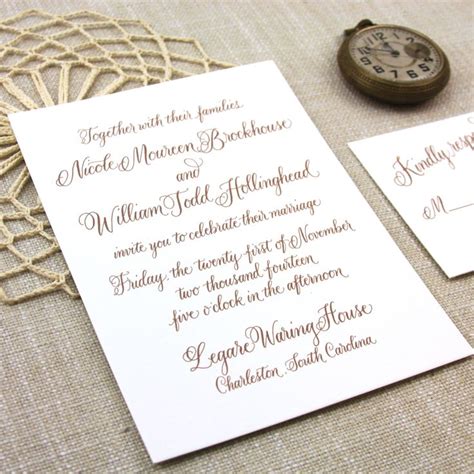 Together with their families,
Nicole Maureen Brockhouse
and
William Todd Hollinghead
invite you to celebrate their marriage
Friday, the twenty first of November
two thousand fourteen
five o'clock in the afternoon
Legare Waring House
Charleston, South Carolina
Kindly resp
M